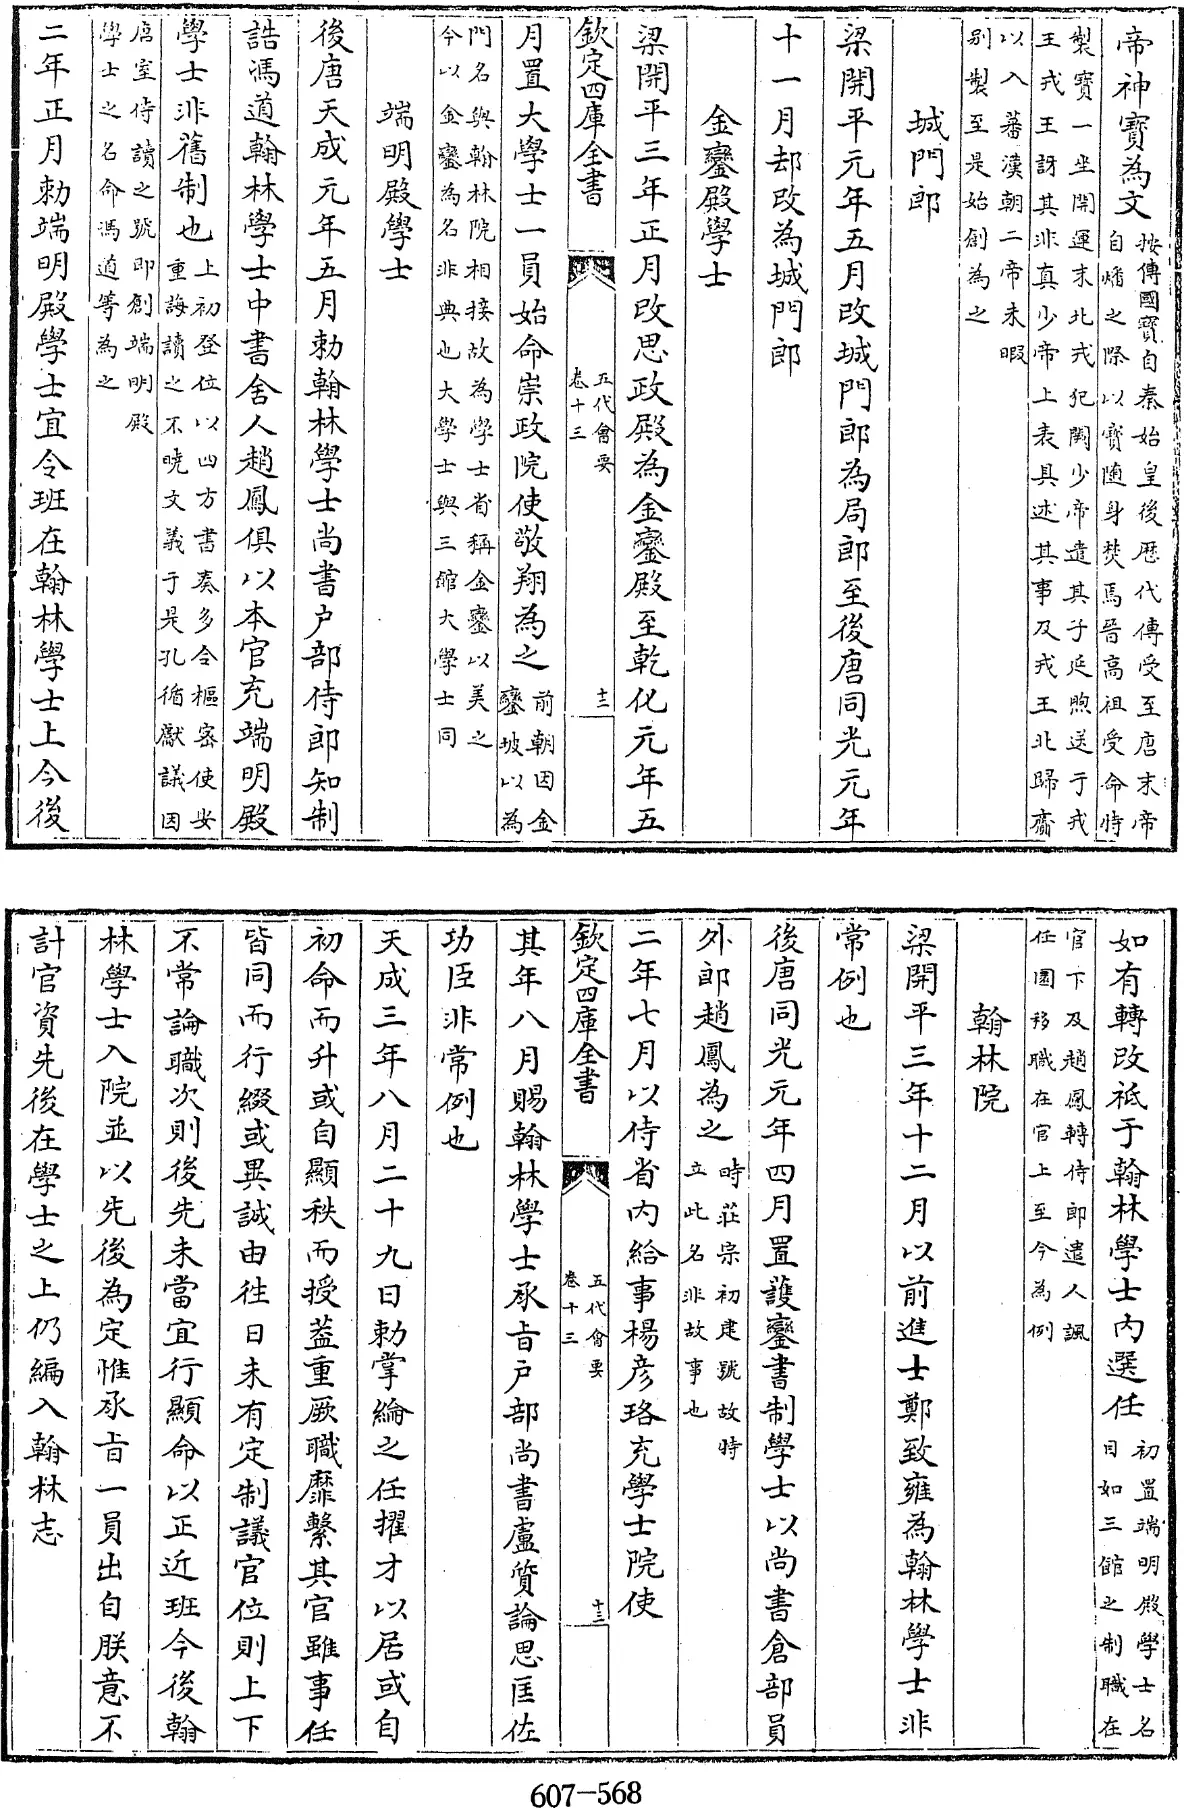 帝神寳為文按傳國寳自秦始皇後歴代傳受至唐末帝
自燔之際以寳随身焚焉晉高祖受命特
製寳一坐開運末北戎犯闕少帝遣其子延煦送于戎
王戎王訝其非真少帝上表具述其事及戎王北歸齎
以入蕃漢朝二帝未暇
别製至是始創為之
城門郎
梁開平元年五月改城門郎為局郎至後唐同光元年
十一月却改為城門郎
金鑾殿學士
梁開平三年正月改思政殿為金鑾殿至乾化元年五
欽定四庫全書
五代會要
卷十三
十二
月置大學士一員始命崇政院使敬翔為之前朝因金
鑾坡以為
門名與翰林院相接故為學士者稱金鑾以美之
今以金鑾為名非典也大學士與三館大學士同
端明殿學士
後唐天成元年五月勅翰林學士尚書户部侍郎知制
誥馮道翰林學士中書舍人趙鳳俱以本官充端明殿
學士非舊制也上初登位以四方書奏多令樞宻使安
重誨讀之不曉文義于是孔循獻議因
唐室侍讀之號即創端明殿
學士之名命馮道等為之
二年正月勅端明殿學士宜令班在翰林學士上今後
如有轉改祗于翰林學士内選任初置端明殿學士名
目如三館之制職在
官下及趙鳳轉侍郎遣人諷
任圜移職在官上至今為例
翰林院
梁開平三年十二月以前進士鄭致雍為翰林學士非
常例也
後唐同光元年四月置護鑾書制學士以尚書倉部員
外郎趙鳳為之時莊宗初建號故時
立此名非故事也
二年七月以侍省内給事楊彦珞充學士院使
欽定四庫全書
五代會要
卷十三
十三
其年八月賜翰林學士承㫖户部尚書盧質論思匡佐
功臣非常例也
天成三年八月二十九日勅掌綸之任擢才以居或自
初命而升或自顯秩而授葢重厥職靡繫其官雖事任
皆同而行綴或異誠由往日未有定制議官位則上下
不常論職次則後先未當宜行顯命以正近班今後翰
林學士入院並以先後為定惟承㫖一員出自朕意不
計官資先後在學士之上仍編入翰林志
607-568